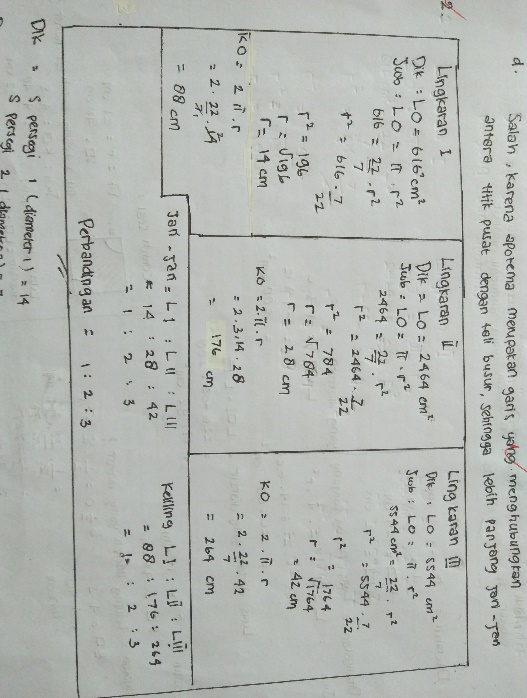 d. Salah, karena apotema merupakan garis yang menghubungkan
antara titik pusat dengan tali busur, sehingga lebih panjang jari-jari
2.
Lingkaran I
Dik : LO = 616 cm²
Jwb : LO = π . r²
616 = 22/7 . r²
r² = 616 . 7/22
r² = 196
r = √196
r = 14 cm
KO = 2 π . r
= 2 . 22/7 . 14
= 88 cm
Lingkaran II
Dik = LO = 2464 cm²
Jwb : LO = π . r²
2464 = 22/7 . r²
r² = 2464 . 7/22
r² = 784
r = √784
r = 28 cm
KO = 2 . π . r
= 2 . 3,14 . 28
= 176 cm
Lingkaran III
Dik : LO = 5544 cm²
Jwb : LO = π . r²
5544 cm² = 22/7 . r²
r² = 5544 . 7/22
r² = 1764
r = √1764
= 42 cm
KO = 2 . π . r
= 2 . 22/7 . 42
= 264 cm
Jari-Jari = L I : L II : L III
= 14 : 28 : 42
= 1 : 2 : 3
Keliling L I : L II : L III
= 88 : 176 : 264
= 1 : 2 : 3
Perbandingan = 1 : 2 : 3
Dik = S persegi 1 (diameter 1) = 14
S persegi 2 (diameter